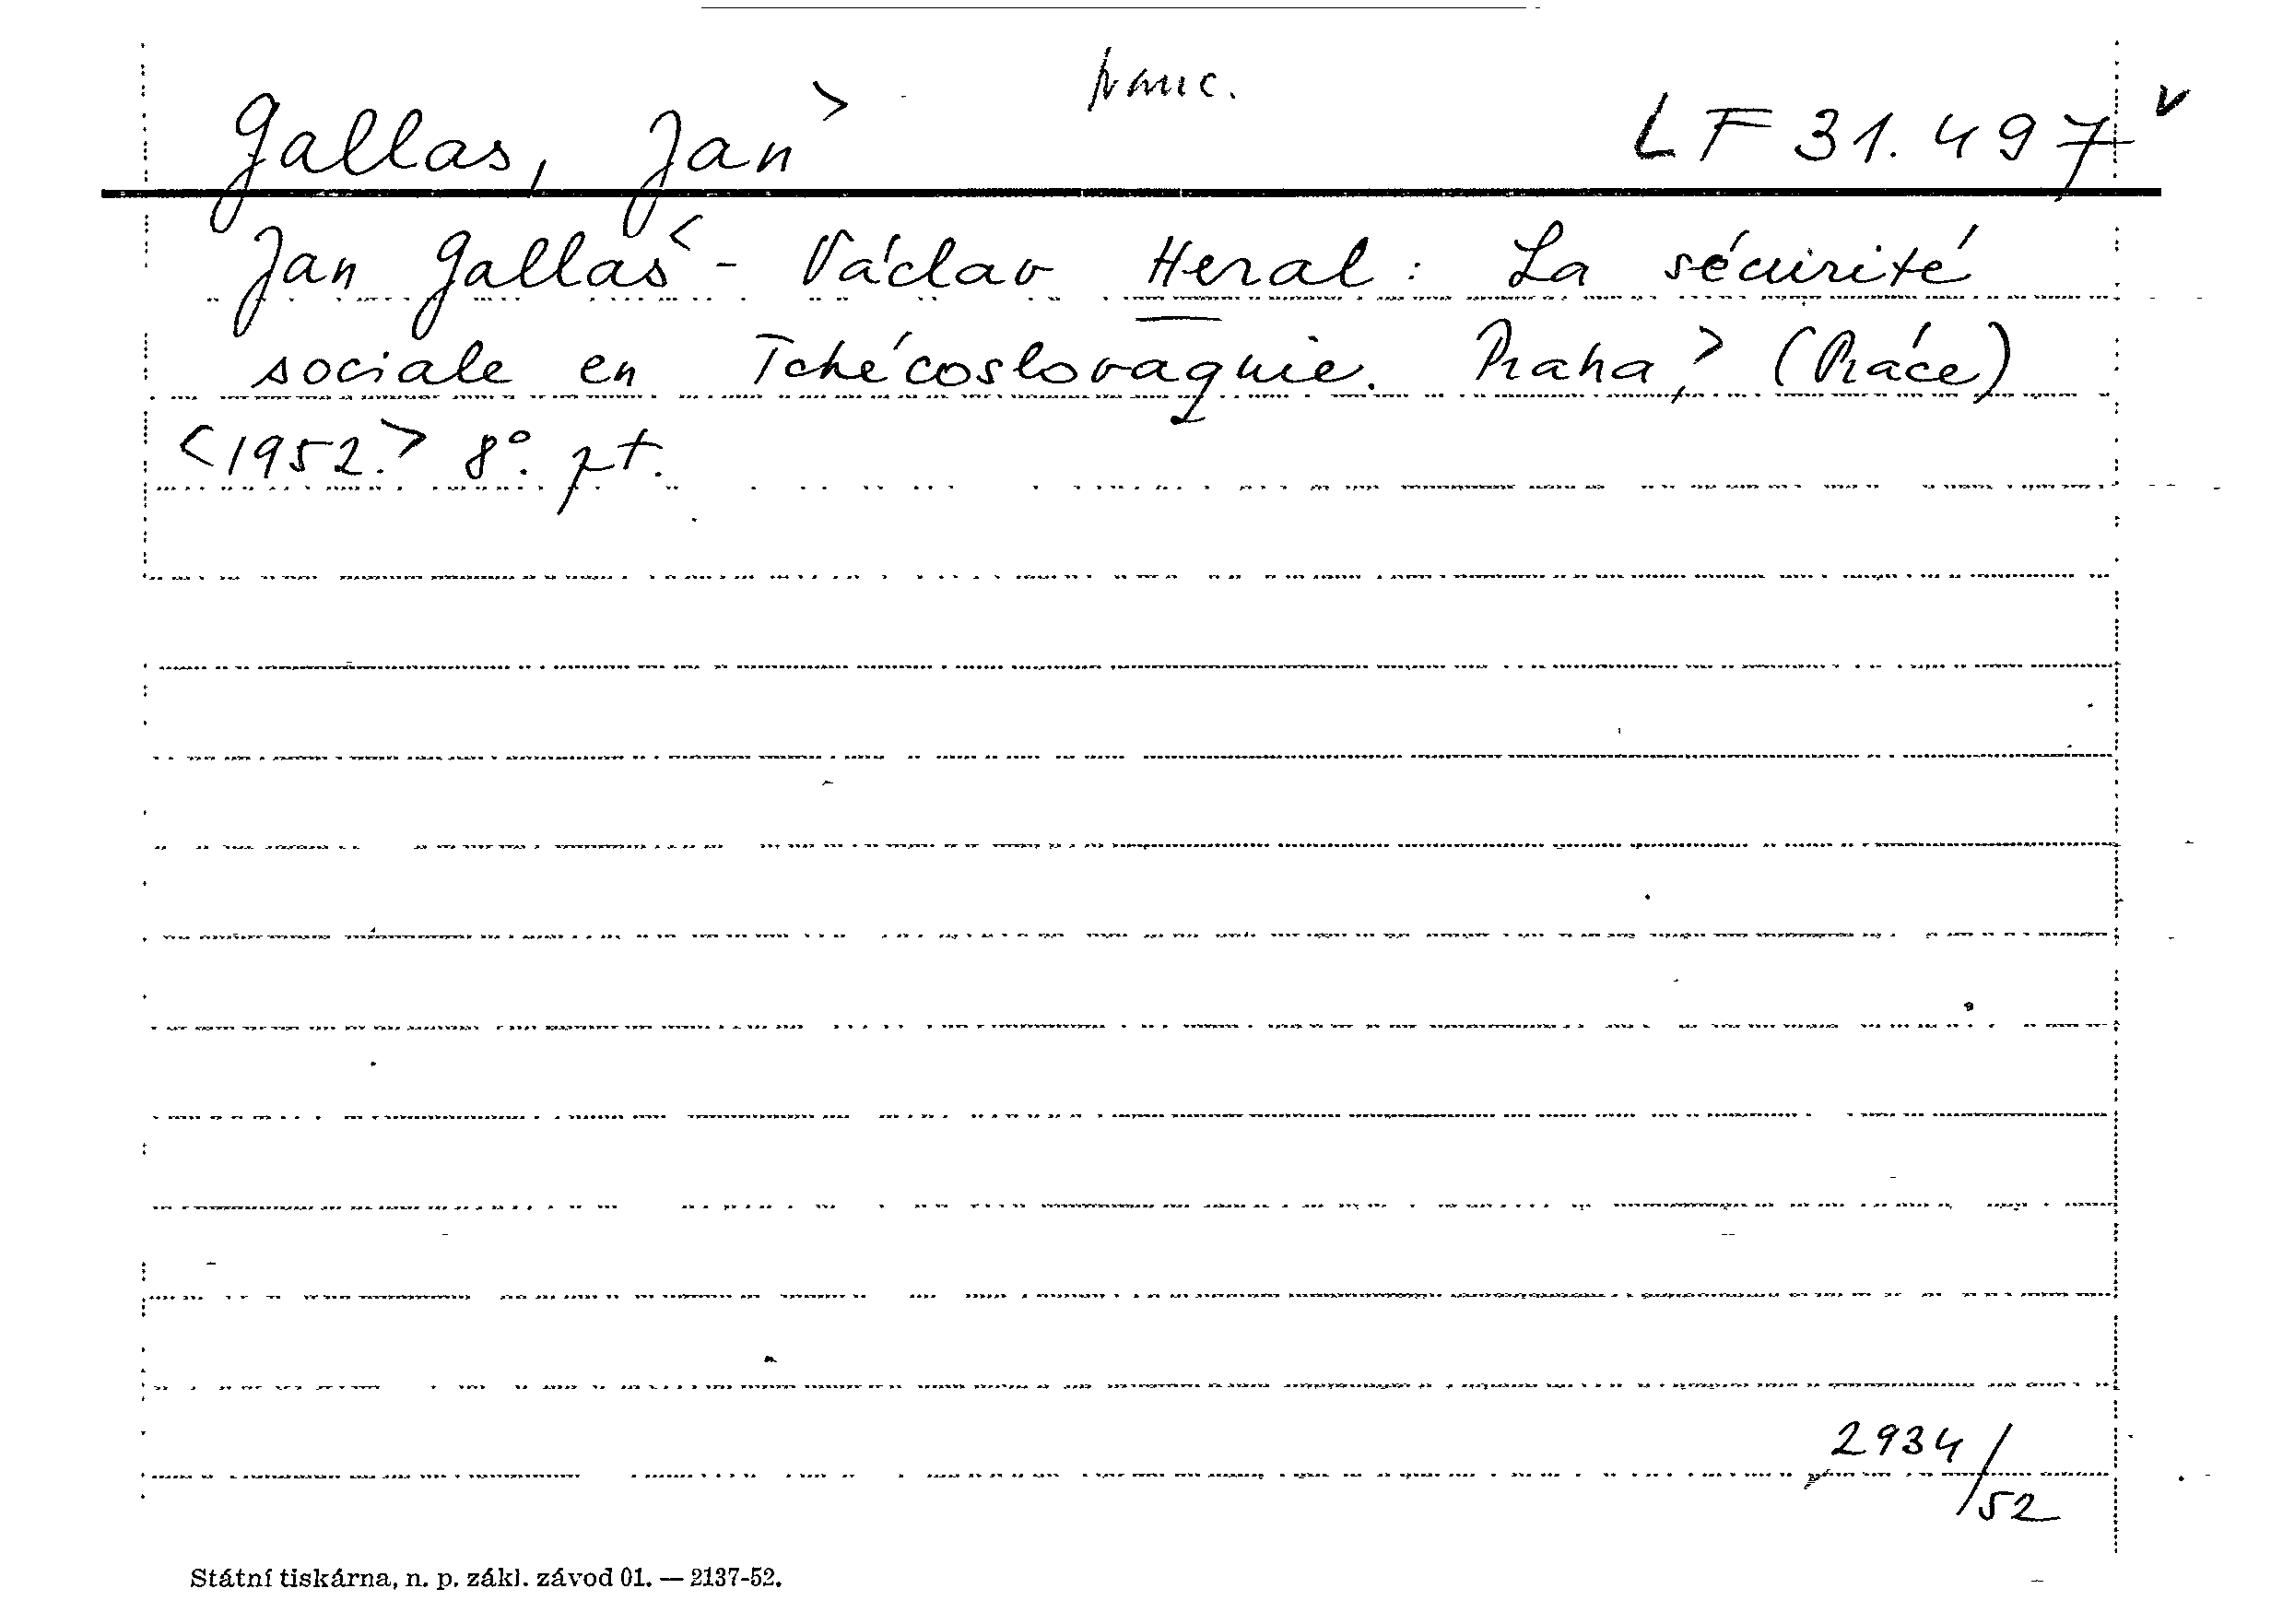 franc.
Gallas, Jan > LF 31.497 v
Jan Gallas < - Václav Heral : La sécurité
sociale en Tchécoslovaquie. Praha, > (Práce)
<1952.> 8°. pt.
2934/52
Státní tiskárna, n. p. zákl. závod 01. — 2137-52.